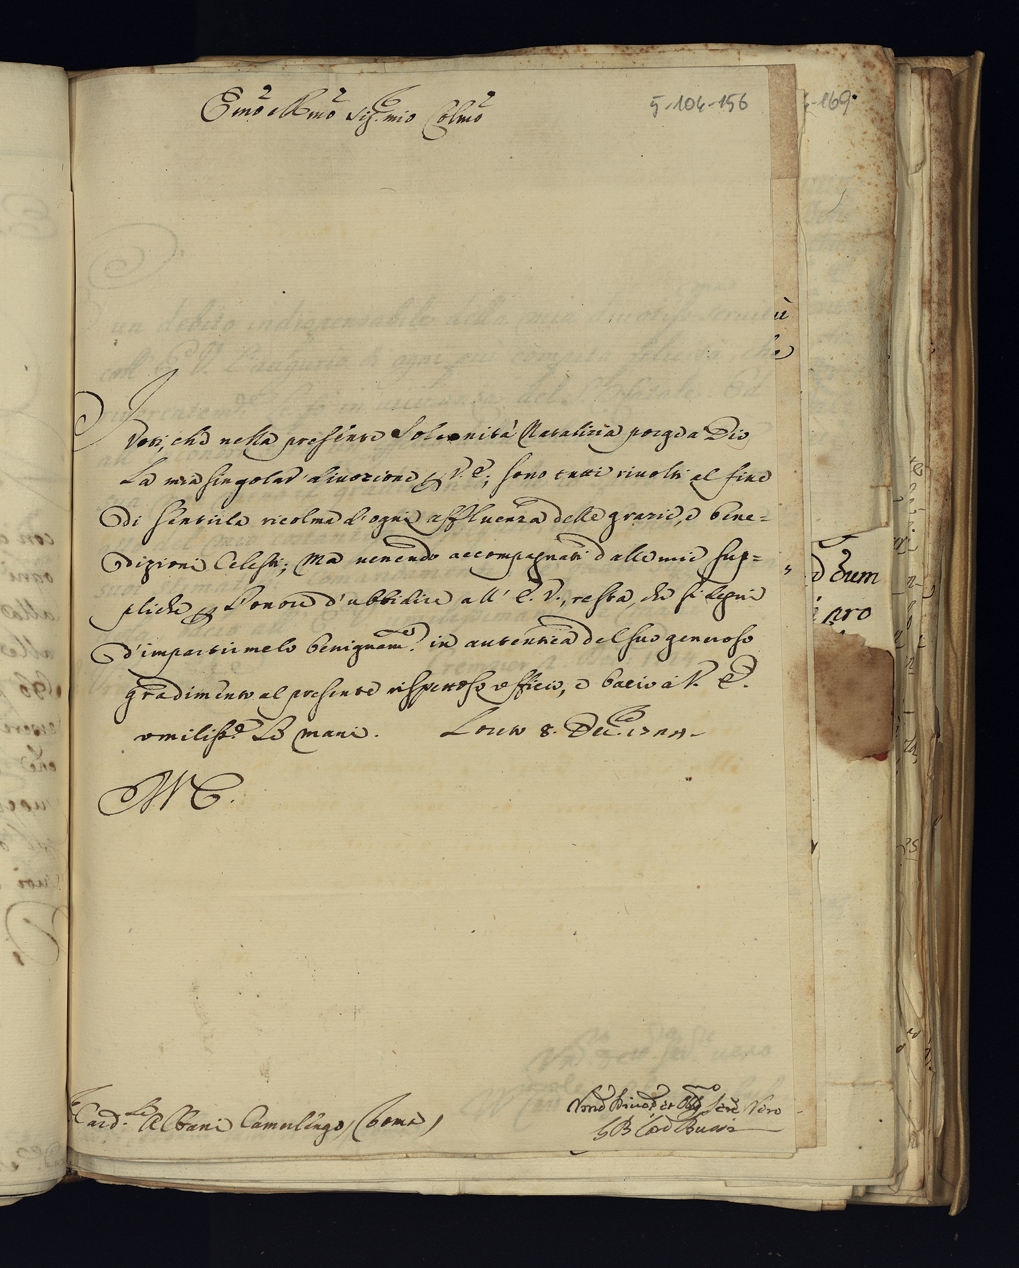 Em̃o e Rm̃o Sig.r mio Colmo
5-104-156
-169
I Voti, che nella presente Solennità Natalizia porge a Dio
La mia singolar divozione p V. E., sono tutti rivolti al fine
di sentirla ricolma d'ogni affluenza delle grazie, e bene=
dizioni Celesti; Ma venendo accompagnati dalle mie sup=
pliche p L'onore d'ubbidire all' E. V., resta, che si degni
d'impartirmelo benignam.e in autentica del suo generoso
gradimento al presente rispettoso officio, e bacio à V. E.
umiliss.e Le mani.
8. Dec.
Card.le Albani Camerlingo, Roma